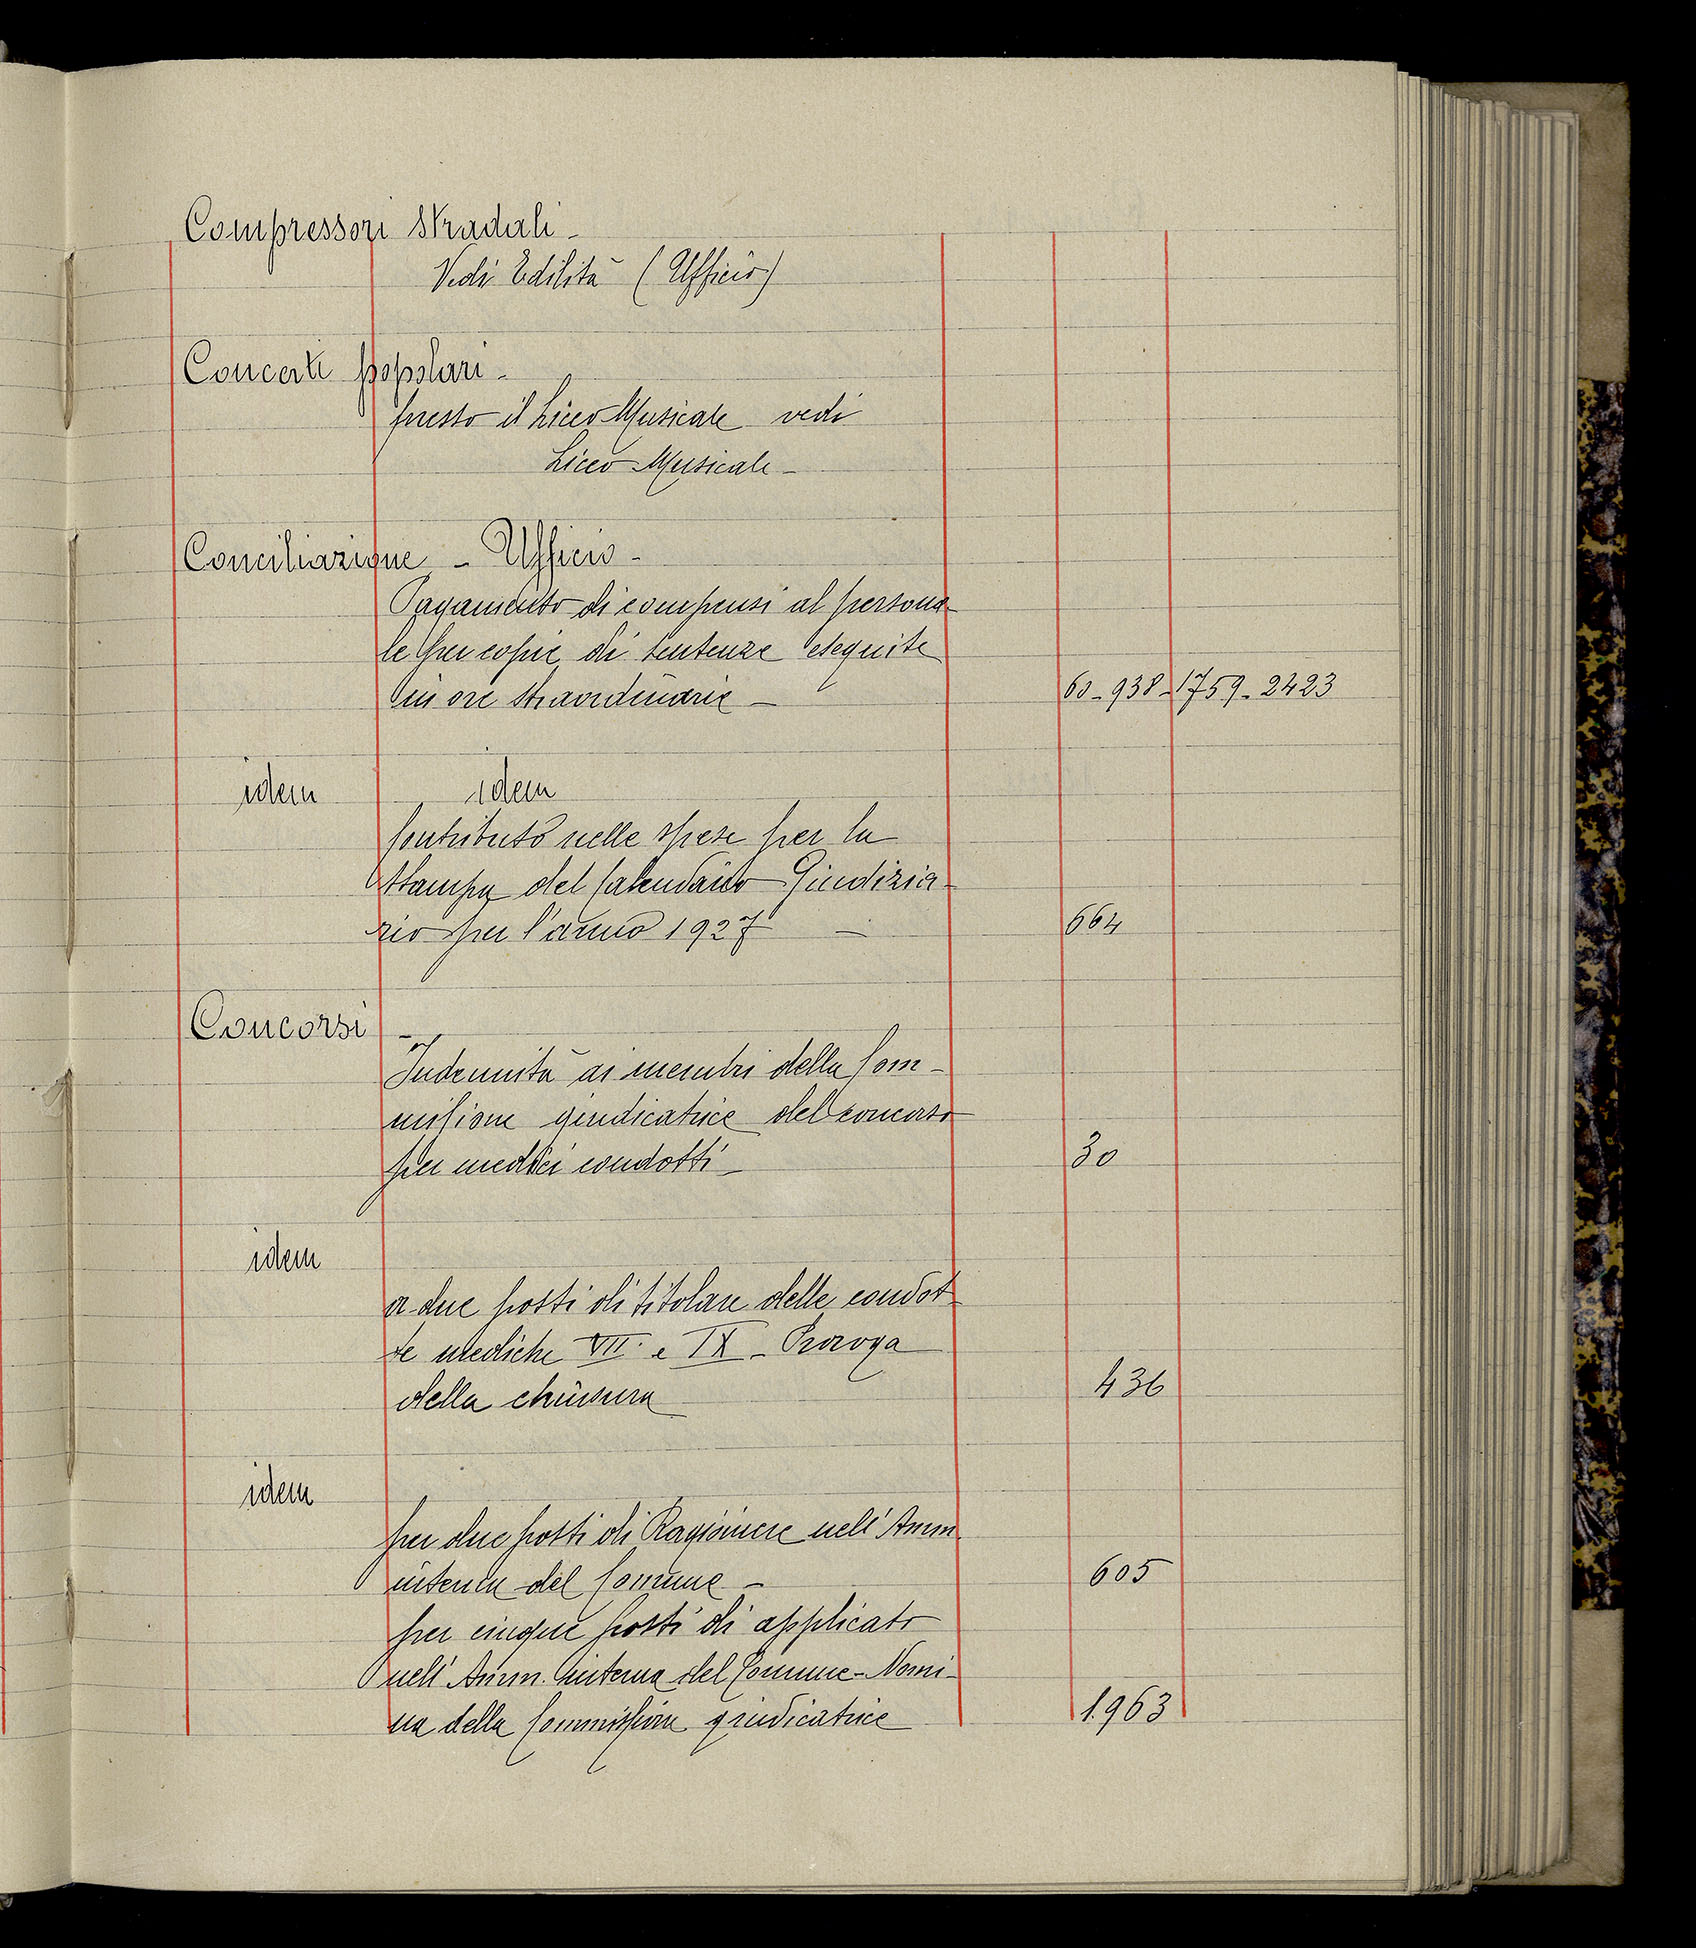 Compressori stradali -
Vedi Edilità (Ufficio)
Concerti popolari -
presso il Liceo Musicale vedi
Liceo Musicale -
Conciliazione - Ufficio -
Pagamento di compensi al persona-
le per copie di sentenze eseguite
in ore straordinarie - 60 - 938 - 1759 - 2423
idem idem
Contributo nelle spese per la
stampa del Calendario Giudizia-
rio per l'anno 1927 - 664
Concorsi -
Indennità ai membri della Com-
missione giudicatrice del concorso
per medici condotti - 30
idem
a due posti di titolare delle condot-
te mediche VII. e IX - Proroga
della chiusura 436
idem
per due posti di Ragioniere nell'Amm.
interna del Comune - 605
per cinque posti di applicato
nell'Amm. interna del Comune - Nomi-
na della Commissione giudicatrice 1.963